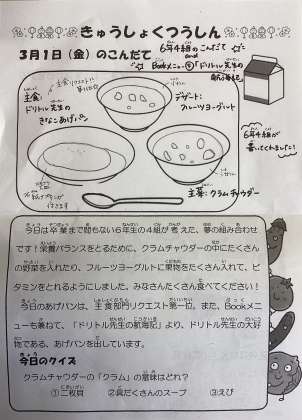 きゅうしょくつうしん
3月1日（金）のこんだて
6年4組のこんだて
and
Bookメニュー④「ドリトル先生の
航海記」
主食リクエスト
第1位☆
主食：
ドリトル先生の
きなこあげパン
デザート：
フルーツヨーグルト
6年4組が
書いてくれました！
主菜：クラムチャウダー
今日は卒業まで間もない6年生の4組が考えた、夢の組み合わせ
です！栄養バランスをとるために、クラムチャウダーの中にたくさん
の野菜を入れたり、フルーツヨーグルトに果物をたくさん入れて、ビ
タミンをとれるようにしました。みなさんたくさん食べてください！
今日のあげパンは、主食部門リクエスト第一位。また、Bookメニ
ューも兼ねて、「ドリトル先生の航海記」より、ドリトル先生の大好
物である、あげパンを出しています。
今日のクイズ
クラムチャウダーの「クラム」の意味はどれ？
①二枚貝 ②具だくさんのスープ ③えび